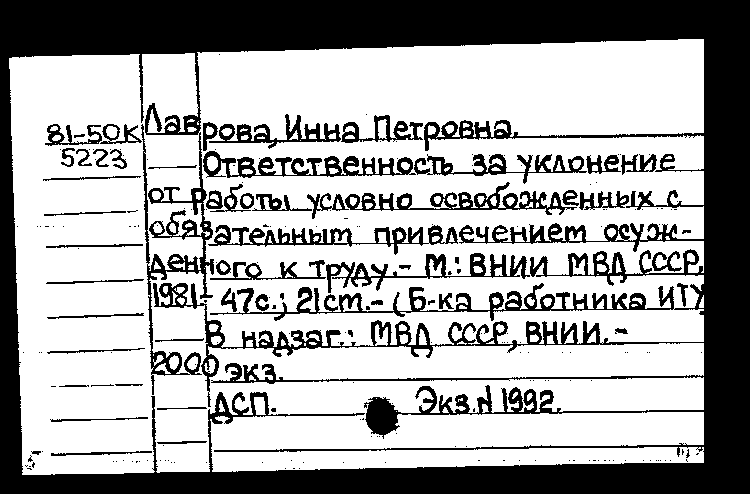 81-50К
5223
Лаврова, Инна Петровна.
Ответственность за уклонение
от работы условно освобожденных с
обязательным привлечением осуж-
денного к труду.- М.: ВНИИ МВД СССР,
1981.- 47с.; 21см.- (Б-ка работника ИТУ
В надзаг.: МВД СССР, ВНИИ.-
2000 экз.
ДСП. Экз.N 1992.
5